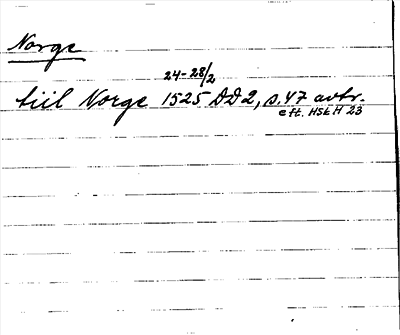 Norge
24-28/2
tiil Norge 1525 DD2, s.47 avtr.
eft. HSEH 23